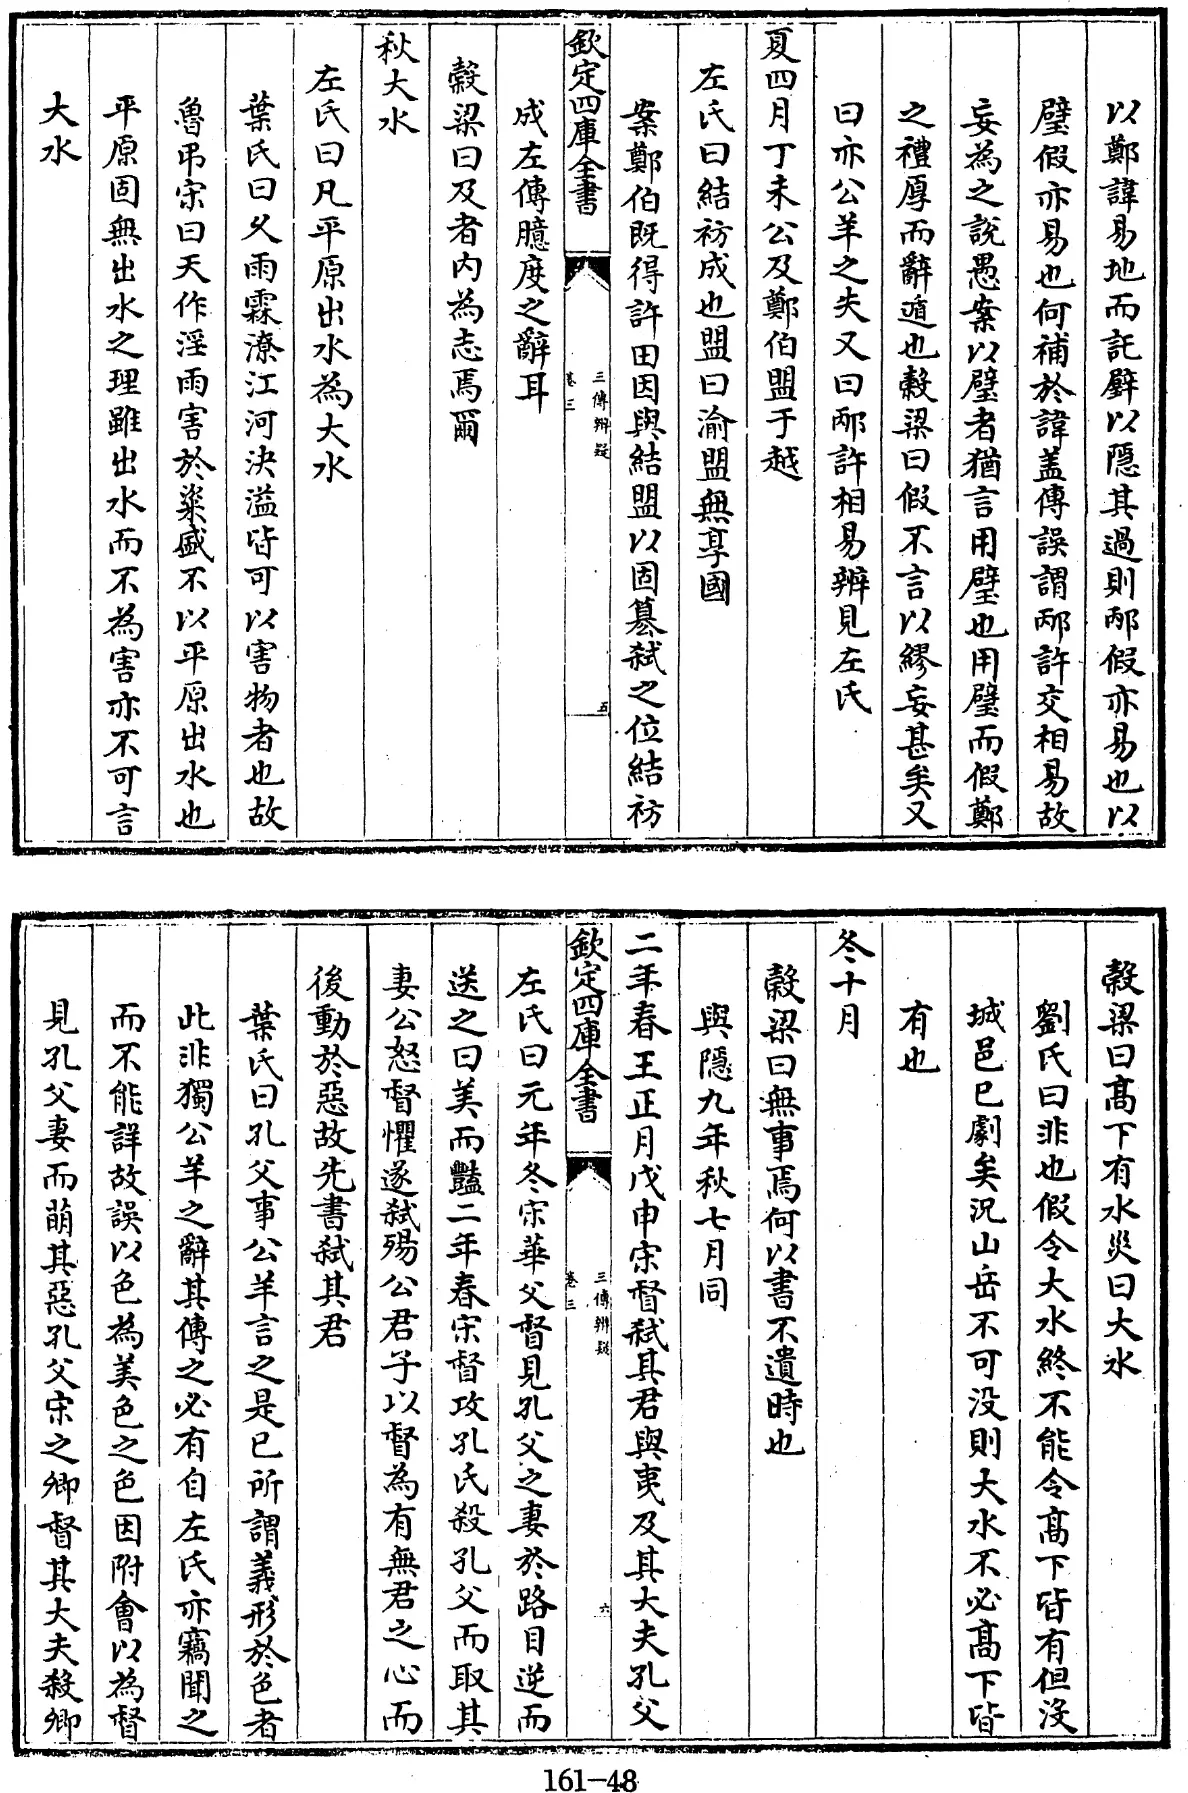 以鄭諱易地而託辟以隱其過則邴假亦易也以
璧假亦易也何補於諱盖傳誤謂邴許交相易故
妄為之說愚案以璧者猶言用璧也用璧而假鄭
之禮厚而辭遁也穀梁曰假不言以繆妄甚矣又
曰亦公羊之失又曰邴許相易辨見左氏
夏四月丁未公及鄭伯盟于越
左氏曰結祊成也盟曰渝盟無享國
案鄭伯既得許田因與結盟以固簒弑之位結祊
欽定四庫全書
三傳辨疑
卷三
五
成左傳臆度之辭耳
穀梁曰及者内為志焉爾
秋大水
左氏曰凡平原出水為大水
葉氏曰久雨霖潦江河決溢皆可以害物者也故
魯弔宋曰天作淫雨害於粢盛不以平原出水也
平原固無出水之理雖出水而不為害亦不可言
大水
穀梁曰髙下有水災曰大水
劉氏曰非也假令大水終不能令髙下皆有但沒
城邑已劇矣況山岳不可没則大水不必髙下皆
有也
冬十月
穀梁曰無事焉何以書不遺時也
與隱九年秋七月同
二年春王正月戊申宋督弑其君與夷及其大夫孔父
欽定四庫全書
三傳辨疑
卷三
六
左氏曰元年冬宋華父督見孔父之妻於路目逆而
送之曰美而豔二年春宋督攻孔氏殺孔父而取其
妻公怒督懼遂弑殤公君子以督為有無君之心而
後動於惡故先書弑其君
葉氏曰孔父事公羊言之是已所謂義形於色者
此非獨公羊之辭其傳之必有自左氏亦竊聞之
而不能詳故誤以色為美色之色因附會以為督
見孔父妻而萌其惡孔父宋之卿督其大夫殺卿
161-48